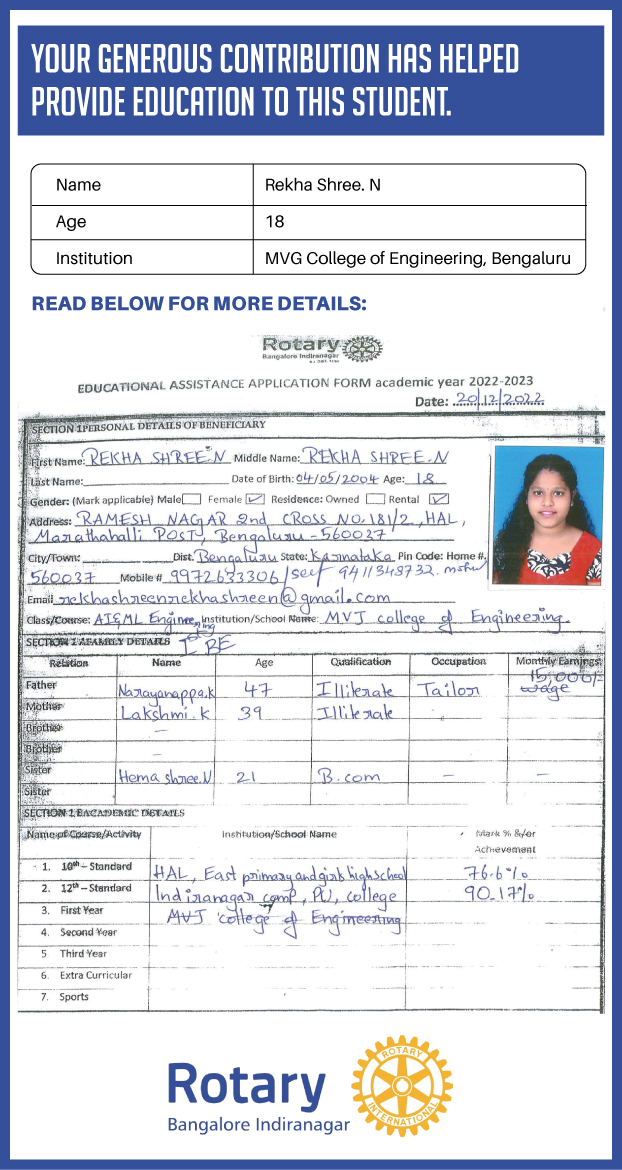 YOUR GENEROUS CONTRIBUTION HAS HELPED
PROVIDE EDUCATION TO THIS STUDENT.
Name Rekha Shree. N
Age 18
Institution MVG College of Engineering, Bengaluru
READ BELOW FOR MORE DETAILS:
Rotary
Bangalore Indiranagar
EDUCATIONAL ASSISTANCE APPLICATION FORM academic year 2022-2023
Date: 20/12/2022
SECTION 1 PERSONAL DETAILS OF BENEFICIARY
First Name: REKHA SHREE.N Middle Name: REKHA SHREE.N
Last Name: Date of Birth: 04/05/2004 Age: 18
Gender: (Mark applicable) Male Female ✓ Residence: Owned Rental ✓
Address: RAMESH NAGAR 2nd CROSS NO.181/2, HAL,
Marathahalli POST, Bengaluru-560037
City/Town: Dist. Bengaluru State: Karnataka Pin Code: Home #.
560037 Mobile # 9972633306/self 9411348732.
Email rekhashreenrekhashreen@gmail.com
Class/Course: AI&ML Engineering Institution/School Name: MVJ college of Engineering.
I BE
FAMILY DETAILS
Relation Name Age Qualification Occupation Monthly Earnings
Father Narayanappa.k 47 Illiterate Tailor 15,000/- wage
Mother Lakshmi.k 39 Illiterate
Brother –
Brother –
Sister Hema shree.N 21 B.com – –
Sister
ACADEMIC DETAILS
Name of Course/Activity Institution/School Name Mark % &/or
Achievement
1. 10th – Standard HAL, East primary and girls high school 76.6%
2. 12th – Standard Indiranagar comp, PU, college 90.17%
3. First Year MVJ college of Engineering
4. Second Year
5 Third Year
6. Extra Curricular
7. Sports
Rotary
Bangalore Indiranagar
ROTARY
INTERNATIONAL